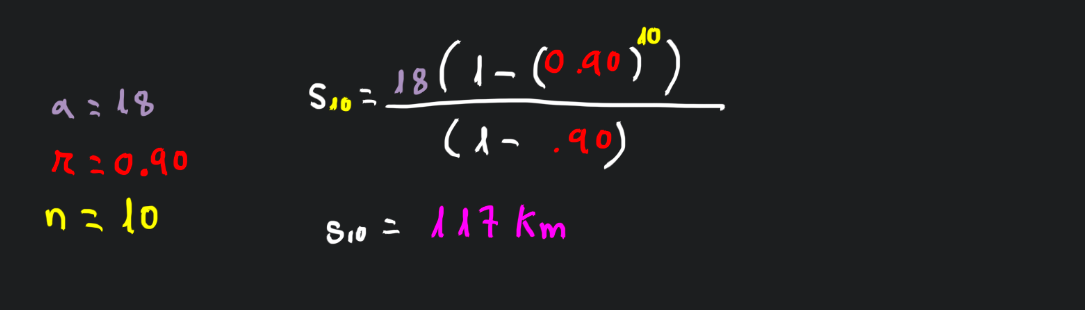 a = 18
r = 0.90
n = 10
S10 = 18(1-(0.90)^10) / (1- .90)
S10 = 117 Km